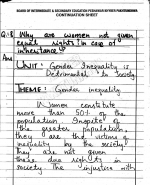 BOARD OF INTERMEDIATE & SECONDARY EDUCATION
CONTINUATION SHEET
Q:8 Why are women not given
equal rights in case of
inheritance?
Ans
UNIT: Gender Inequality is
Detrimental To Society
THEME: Gender inequality
Women constitute
more than 50% of the
population. Inspite of
the greater population,
they are the victims of
inequality by the society.
They are not given
these due rights in
society. The injustice with